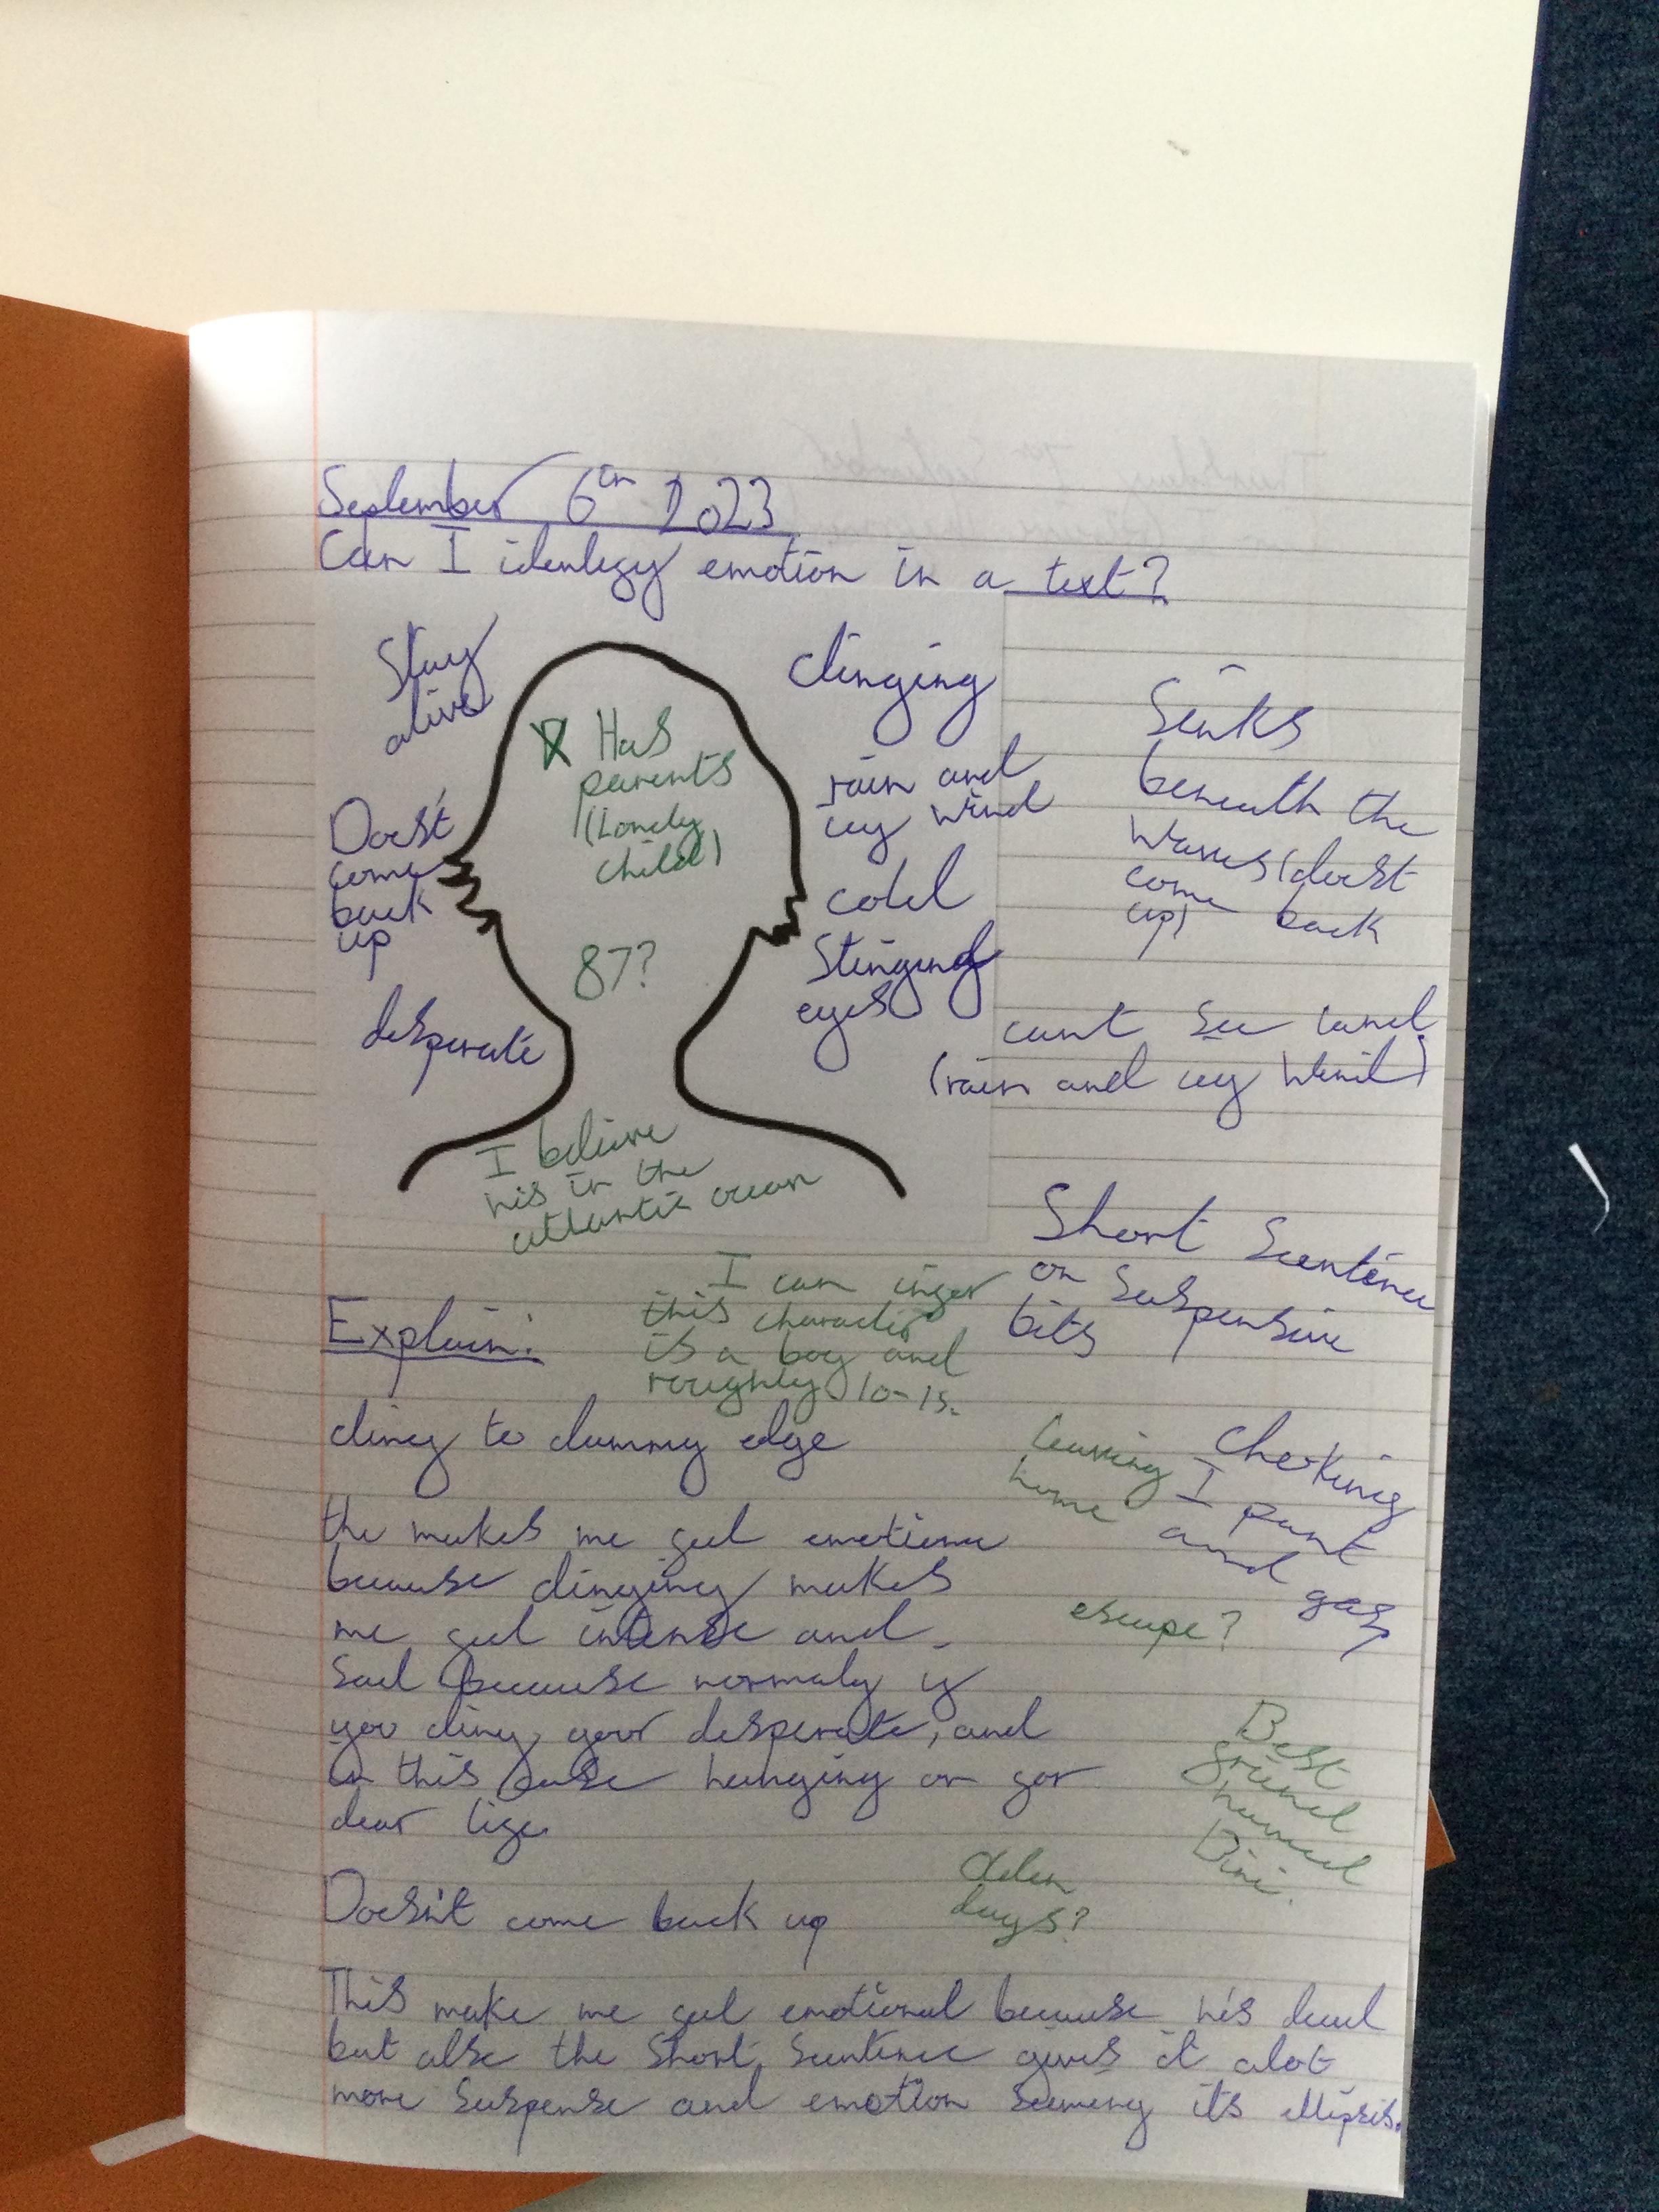 September 6th 2023
Can I identify emotion in a text?
Stay
alive
Doesn't
come
back
up
desperate
Has
parents
(Lonely
child)
87?
I believe
his in the
atlantic ocean
clinging
rain and
icy wind
cold
Stinging
eyes
Sinks
beneath the
waves (doest
come back
up)
cant see land
(rain and icy wind)
Short Scentence
on Suspensive
bits
I can infer
this character
is a boy and
roughly 10-15.
Explain:
cling to dummy edge
the makes me feel
because clinging makes
me feel intense and
Sad because normaly if
you cling your desperate, and
in this case hanging on for
dear life
leaving
home
Checking
I pant
and gasp
escape?
Best
friend
named
Dini.
Olden
days?
Doesn't come back up
This make me feel emotional because his dead
but also the Short Scentence gives it alot
more Suspense and emotion its ellipsis.